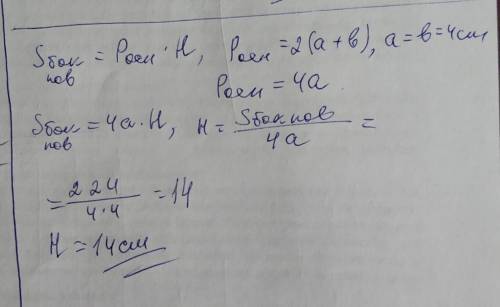 Sбок пов = Pосн · H, Pосн = 2(a+в), a = в = 4см
Pосн = 4a
Sбок пов = 4a · H, H = Sбок пов / 4a =
= 224 / 4·4 = 14
H = 14см